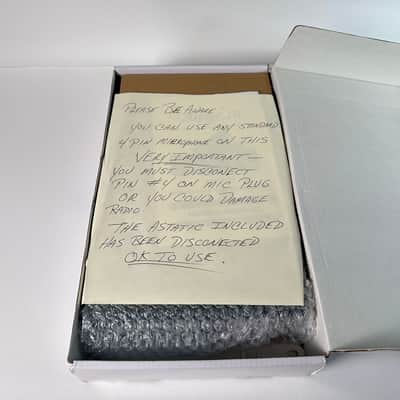 PLEASE BE AWARE:
YOU CAN USE ANY STANDARD
4 PIN MICROPHONE ON THIS
VERY IMPORTANT—
YOU MUST DISCONECT
PIN #4 ON MIC PLUG
OR YOU COULD DAMAGE
RADIO
THE ASTATIC INCLUDED
HAS BEEN DISCONECTED
OK TO USE.